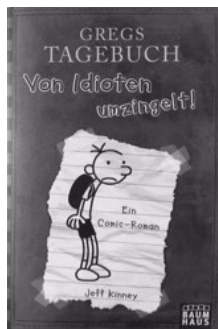 GREGS
TAGEBUCH
Von Idioten
umzingelt!
Ein
Comic-Roman
Jeff Kinney
BAUM
HAUS